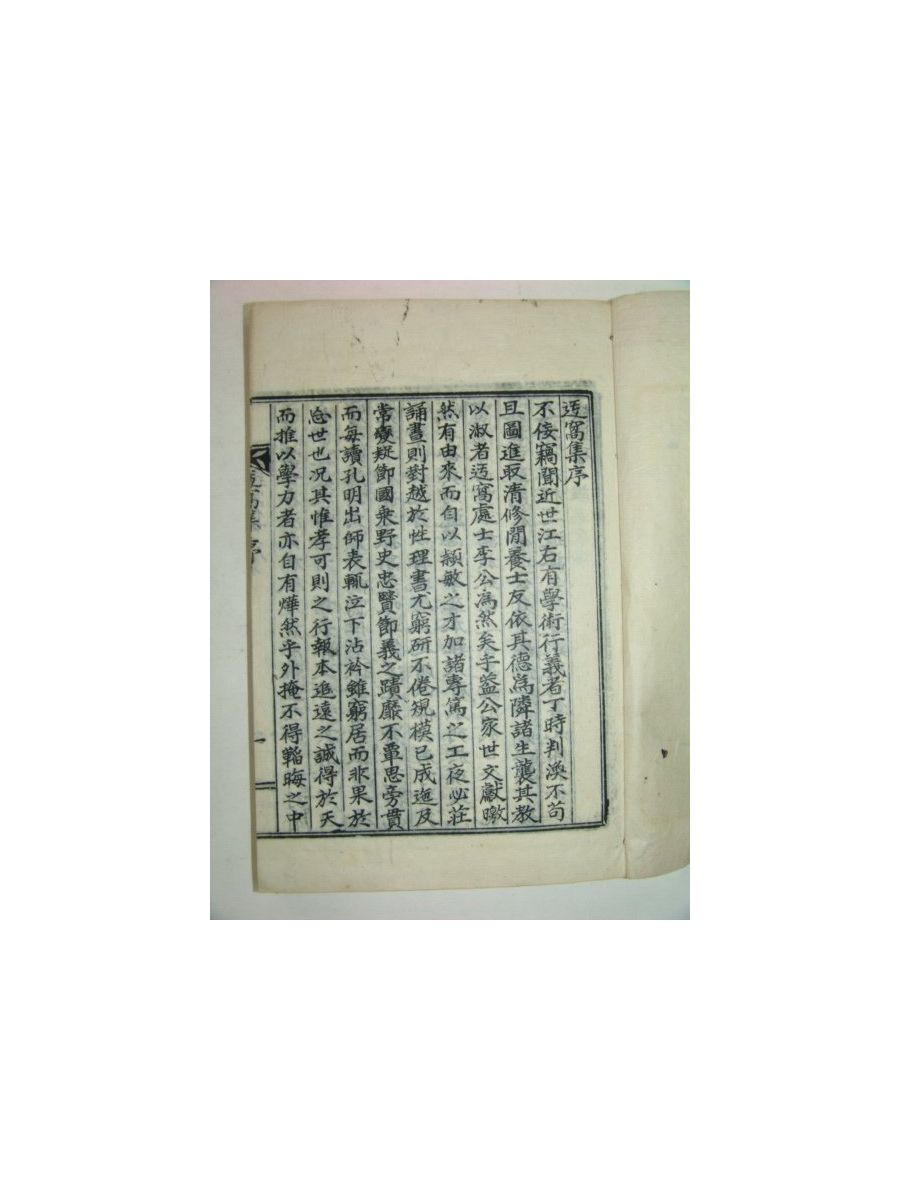 适窩集序
不佞竊聞近世江右有學術行義者丁時判渙不苟
且圖進取清修閒養士友依其德爲隣諸生襲其教
以淑者适窩處士李公爲然矣乎益公家世文獻曒
然有由來而自以穎敏之才加諸專篤之工夜必莊
誦晝則對越於性理書尤窮硏不倦規模已成迤及
常變疑節國乘野史忠賢節義之蹟靡不覃思旁貫
而每讀孔明出師表輒泣下沾衿雖窮居而非果於
忘世也况其惟孝可則之行報本追遠之誠得於天
而推以學力者亦自有燁然乎外掩不得韜晦之中
窩集 序 一